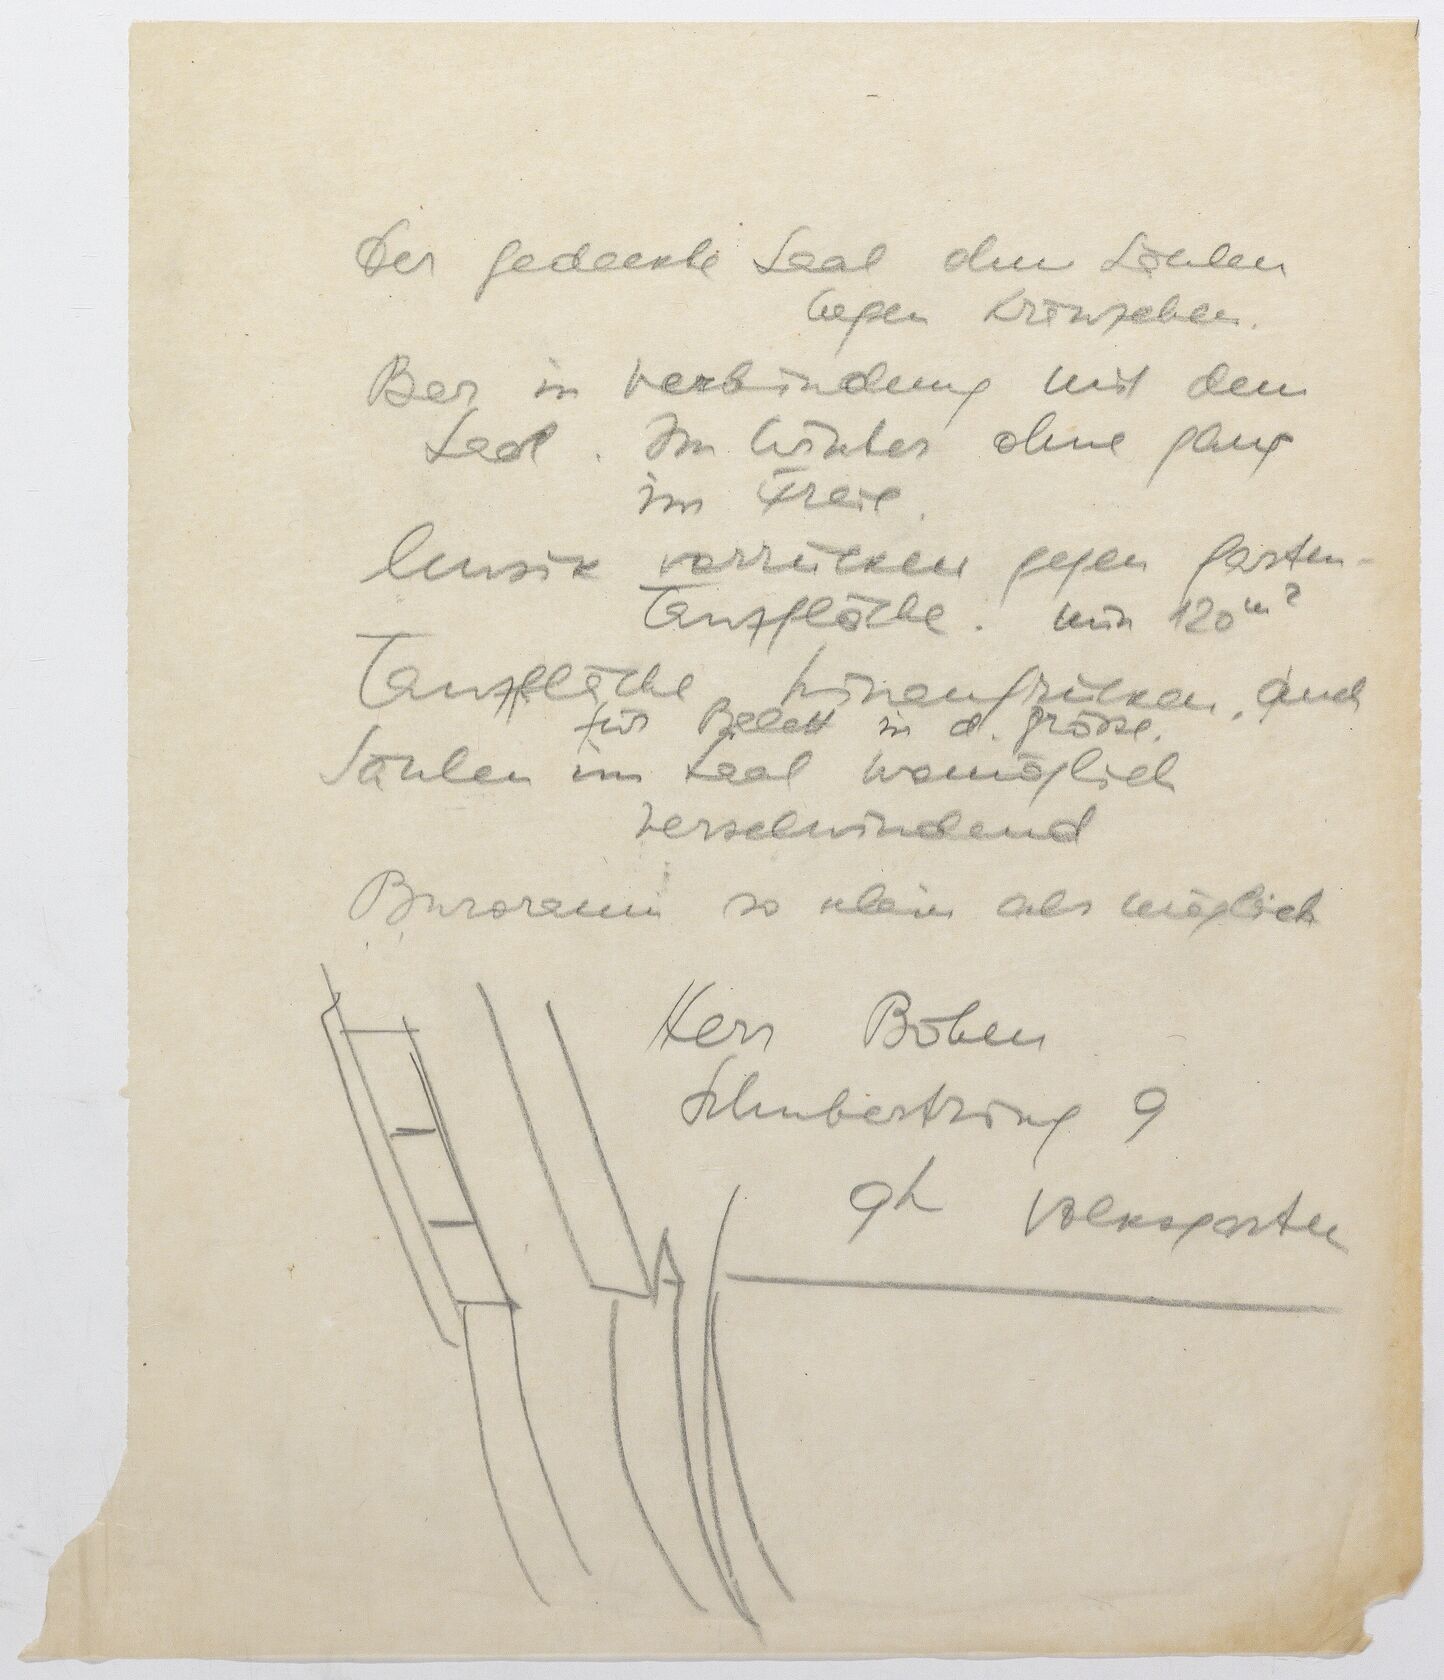 Der gedeckte Saal ohne Säulen
wegen Kränzchen.
Bar in Verbindung mit dem
Saal. Im Winter ohne gang
im Freie.
Musik vorrücken gegen garten-
Tanzfläche. min 120 m²
Tanzfläche hinausrücken, auch
für Balett in d. größe.
Säulen im Saal womöglich
verschwindend
Büroraum so klein als möglich
Herr Böhm
Schubertring 9
9h Volksgarten